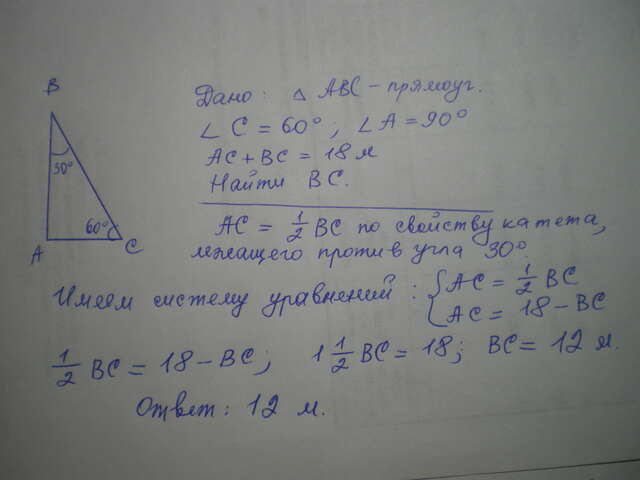 B
30°
60°
A
C
Дано: △ ABC - прямоуг.
∠ C = 60°; ∠ A = 90°
AC + BC = 18 м
Найти BC.
AC = 1/2 BC по свойству катета,
лежащего против угла 30°.
Имеем систему уравнений: { AC = 1/2 BC
AC = 18 - BC
1/2 BC = 18 - BC; 1 1/2 BC = 18; BC = 12 м.
Ответ: 12 м.